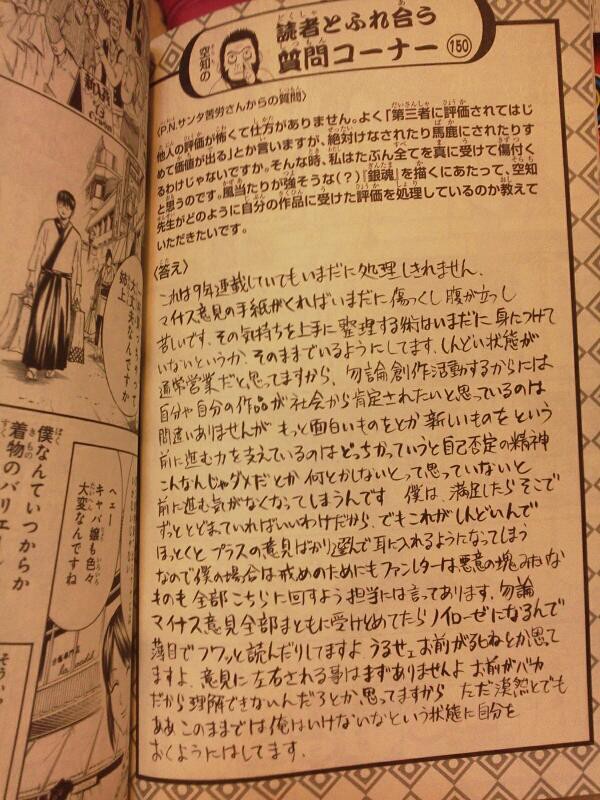 空知の
読者とふれ合う
質問コーナー 150
〈P.N.サンタ苦労さんからの質問〉
他人の評価が怖くて仕方がありません。よく「第三者に評価されてはじ
めて価値が出る」とか言いますが、絶対けなされたり馬鹿にされたりす
るわけじゃないですか。そんな時、私はたぶん全てを真に受けて傷付く
と思うのです。風当たりが強そうな(?)『銀魂』を描くにあたって、空知
先生がどのように自分の作品に受けた評価を処理しているのか教えて
いただきたいです。
〈答え〉
これは9年連載していてもいまだに処理しきれません。
マイナス意見の手紙がくればいまだに傷つくし腹が立つし
苦しいです。その気持ちを上手に整理する術はいまだに身につけて
いないというか、そのままでいるようにしてます。しんどい状態が
通常営業だと思ってますから。勿論創作活動するからには
自分や自分の作品が社会から肯定されたいと思っているのは
間違いありませんが もっと面白いものをとか新しいものをという
前に進む力を支えているのはどっちかっていうと自己否定の精神
こんなんじゃダメだとか何とかしないとって思っていないと
前に進む気がなくなってしまうんです 僕は、満足したらそこで
ずっととどまっていればいいわけだから、でもこれがしんどいんで
ほっとくとプラスの意見ばかり選んで耳に入れるようになってしまう
なので僕の場合は戒めのためにもファンレターは悪意の塊みたいな
ものも全部こちらに回すよう担当には言ってあります。勿論
マイナス意見全部まともに受けとめてたらノイローゼになるんで
薄目でフワッと読んだりしてますよ うるせェお前が死ねとか思って
ますよ。意見に左右される事はまずありませんよ お前がバカ
だから理解できないんだろとか、思ってますから ただ漠然とでも
ああこのままでは俺はいけないなという状態に自分を
おくようにはしてます。
大丈夫なんですか
姉上
僕なんていつからか
着物のバリエー
へェー
キャバ嬢も色々
大変なんですね